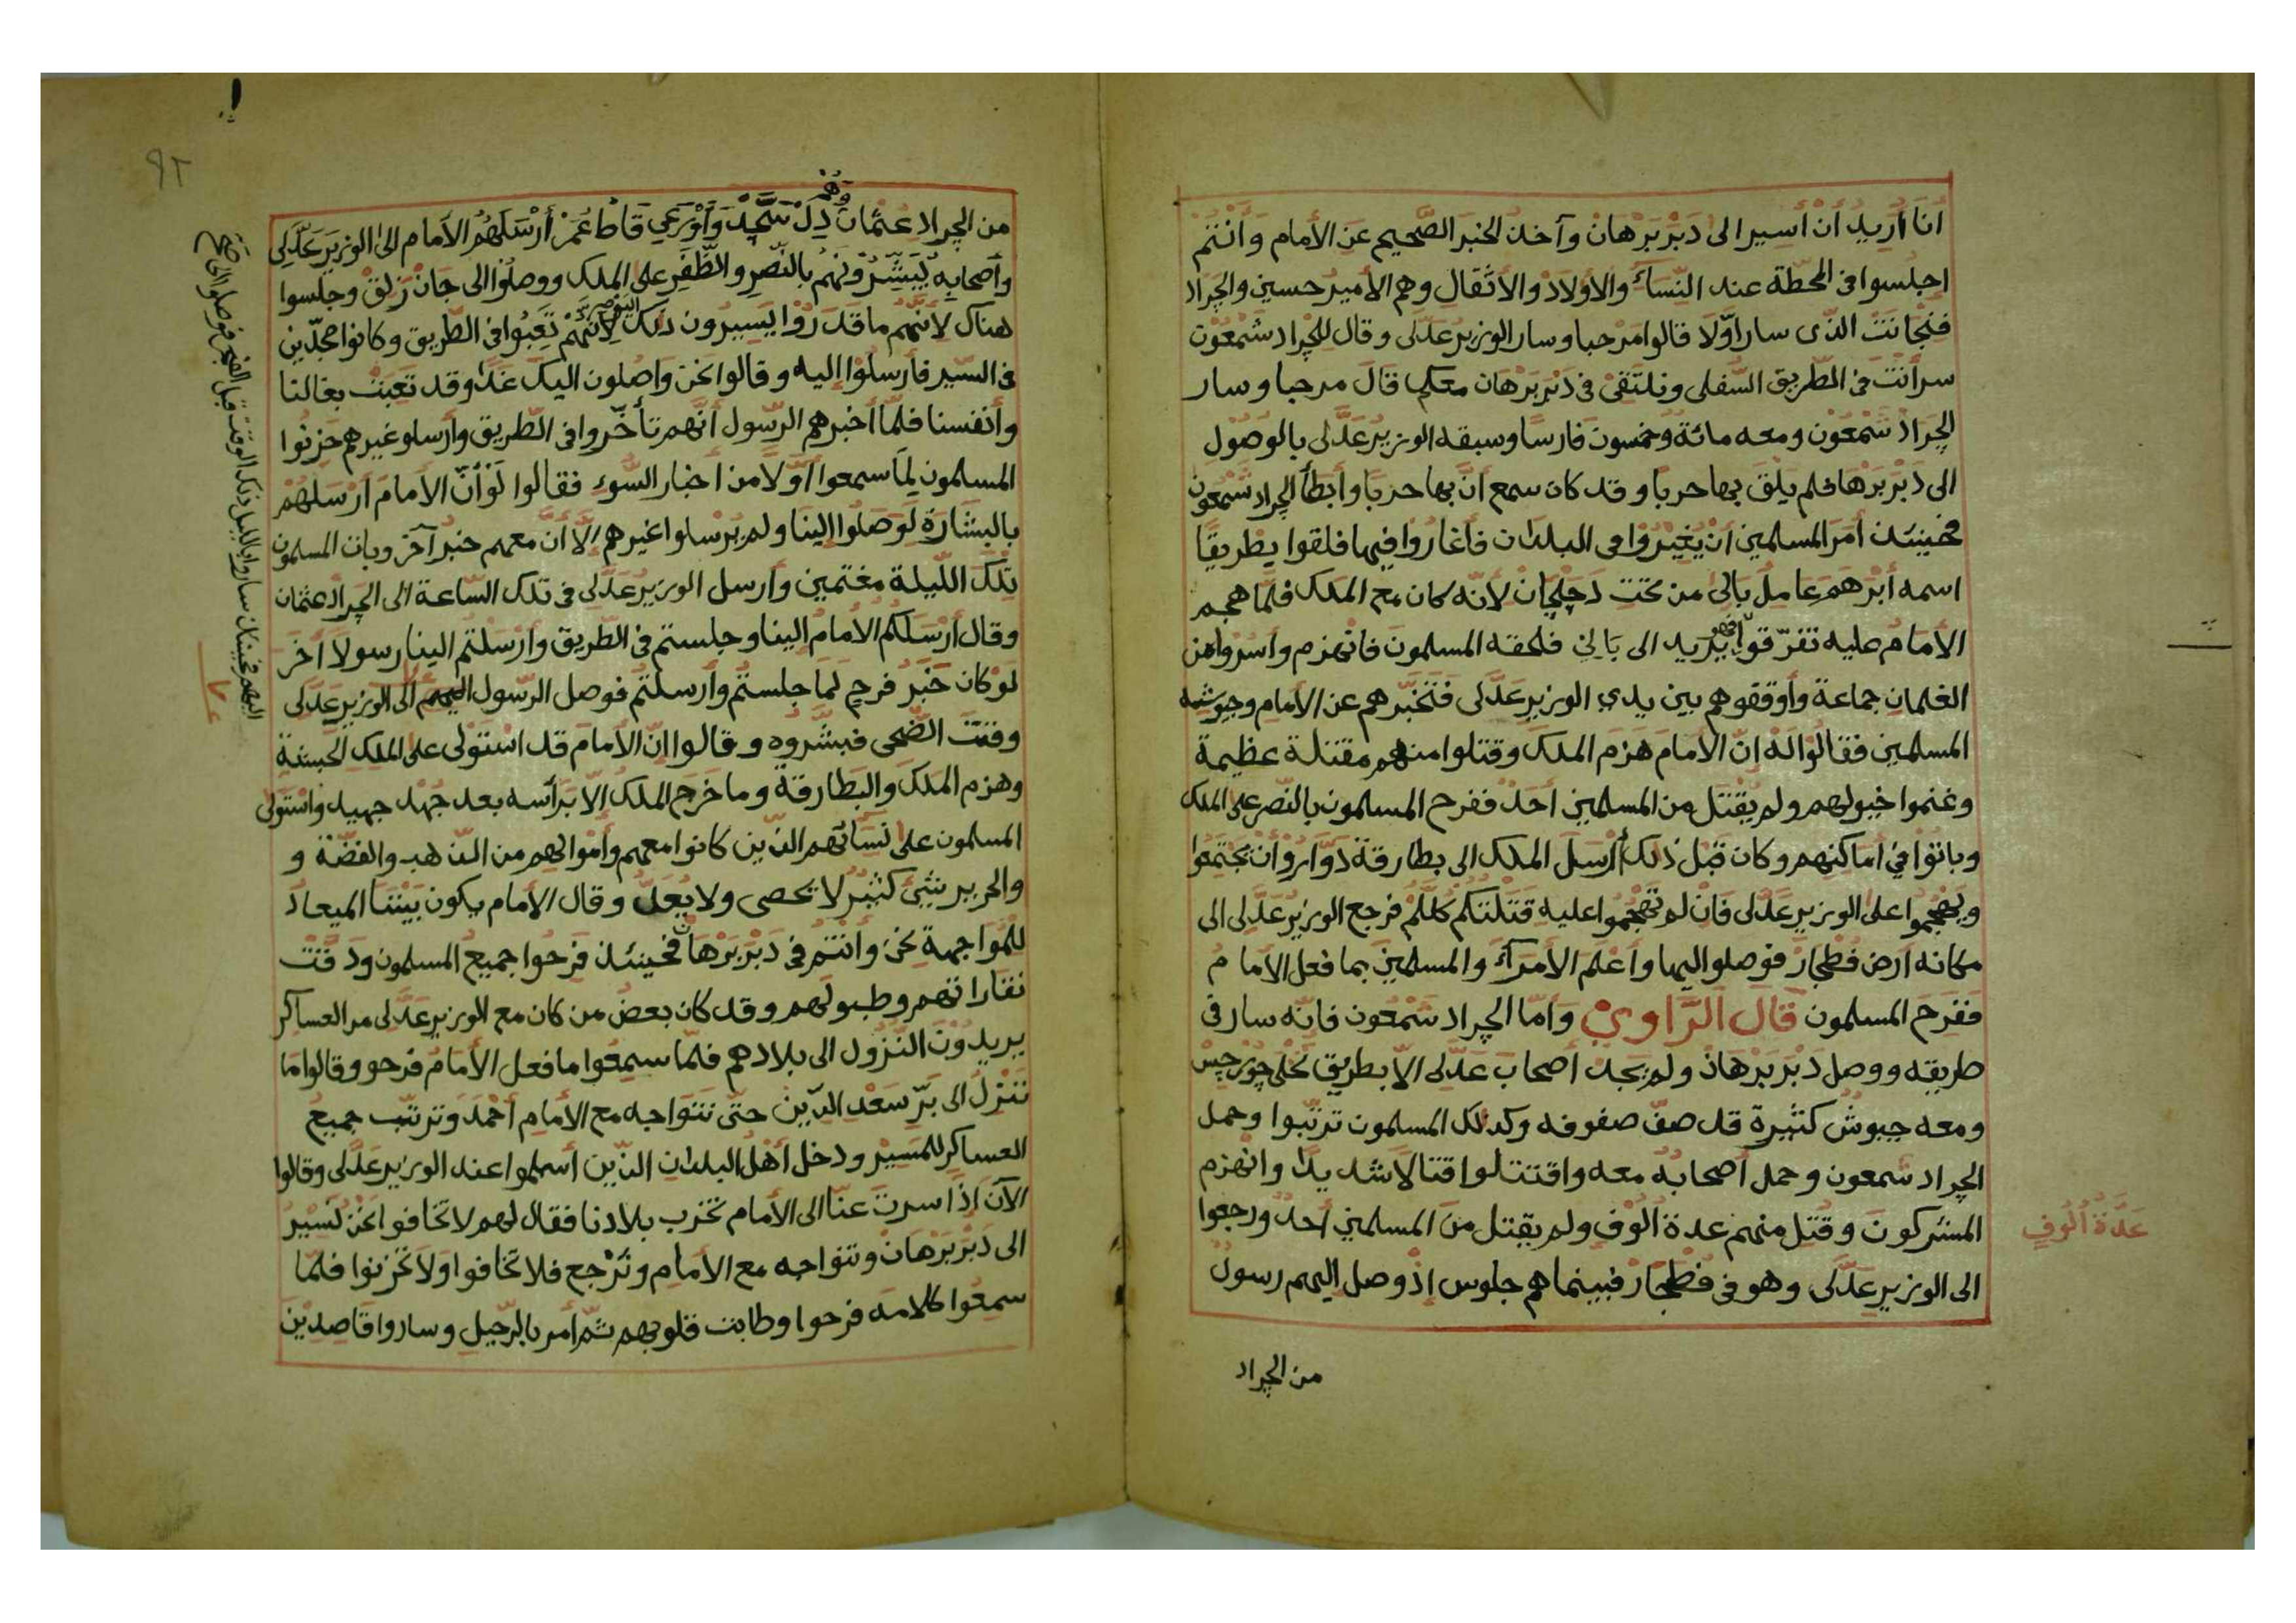 انا أريد ان أسير الى دَبْر بَرْهان وآخذ الخبر الصّحيح عن الأمام وانتم
اجلسوا فى المحطّة عند النّساء والاولاد والأثقال وهم الأمير حسين والجراد
الذى سار اوّلا قالوا مرحبا وسار الوزير عدّلى وقال للجراد شمعون
سر أنت فى الطّريق السّفلى ونلتقى فى دبر برهان معكم قال مرحبا وسار
الجراد شمعون ومعه مائة وخمسون فارسا وسبقه الوزير عدّلى بالوصول
الى دبر برهان فلم يلق بها حربا وقد كان سمع انّ بها حربا وأبطأ الجراد شمعون
فحينئذ أمر المسلمين أن يغيروا فى البلدان فأغاروا فيها فلقوا بطريقا
اسمه أبرهم عامل بالى من تحت دجلجان لأنّه كان مع الملك فلمّا هجم
الأمام عليه تفرّقوا يريد الى بالى فلحقه المسلمون فانهزم وأسروا من
الغلمان جماعة وأوقفوهم بين يدي الوزير عدّلى فتخبّرهم عن الأمام وجيوشه
المسلمين فقالوا له انّ الأمام هزم الملك وقتلوا منهم مقتلة عظيمة
وغنموا خيولهم ولم يقتل من المسلمين أحد ففرح المسلمون بالنّصر على الملك
وباتوا فى أماكنهم وكان قبل ذلك أرسل الملك الى بطارقة دوّارو أن يجتمعوا
ويهجموا على الوزير عدّلى فان لم تهجموا عليه قتلتكم كلّكم فرجع الوزير عدّلى الى
مكانه ارض فطجار فوصلوا اليها وأعلم الأمراء والمسلمين بما فعل الأمام
ففرح المسلمون قال الرّاوي وأمّا الجراد شمعون فانّه سار فى
طريقه ووصل دبر برهان ولم يجد أصحاب عدّلى الاّ بطريق تخلى جورجيس
ومعه جيوش كثيرة قد صفّ صفوفه وكذلك المسلمون ترتّبوا وحمل
الجراد شمعون وحمل أصحابه معه واقتتلوا قتالا شديدا وانهزم
المشركون وقتل منهم عدة ألوف ولم يقتل من المسلمين أحد ورجعوا
الى الوزير عدّلى وهو فى فطجار فبينما هم جلوس إذ وصل إليهم رسول
عدّة ألوف
من الجراد
٩٢
من الجراد عثمان دل سجد وأورعي قاط عمر أرسلهم الأمام الى الوزير عدّلى
وهم
وأصحابه يبشّرونهم بالنّصر والظّفر على الملك ووصلوا الى جان زلق وجلسوا
هناك لأنّهم ما قدروا يسيرون ذلك لأنّهم تعبوا فى الطّريق وكانوا مجدّين
فى السّير فأرسلوا إليه وقالوا نحن واصلون اليك غدا وقد تعبت بغالنا
وأنفسنا فلمّا أخبرهم الرّسول أنّهم تأخّروا فى الطّريق وأرسلو غيرهم حزنوا
المسلمون لما سمعوا أوّلا من اخبار السّوء فقالوا لو أنّ الأمام أرسلهم
بالبشارة لوصلوا إلينا ولم يرسلوا غيرهم إلاّ أنّ معهم خبر آخر وبات المسلمون
تلك اللّيلة مغتمين وأرسل الوزير عدّلى فى تلك السّاعة الى الجراد عثمان
وقال أرسلكم الأمام الينا وجلستم فى الطّريق وأرسلتم الينا رسولا أخر
لو كان خبر فرح لما جلستم وأرسلتم فوصل الرّسول اليهم الى الوزير عدّلى
وقت الضّحى فبشّروه وقالوا انّ الأمام قد استولى على الملك الحبشة
وهزم الملك والبطارقة وما خرج الملك إلا برأسه بعد جهد جهيد واستولى
المسلمون على نسائهم الذّين كانوا معهم وأموالهم من الذّهب والفضّة و
والحرير شيئ كثير لا تحصى ولا يعدّ وقال الأمام يكون بيننا الميعاد
للمواجهة نحن وانتم فى دبر برهان فحينئذ فرحوا جميع المسلمون ودقّت
نقاراتهم وطبولهم وقد كان بعض من كان مع الوزير عدّلى من العساكر
يريدون النّزول الى بلادهم فلمّا سمعوا ما فعل الأمام فرحو وقالوا ما
ننزل الى برّ سعد الدّين حتّى نتواجه مع الأمام أحمد وترتّب جميع
العساكر للمسير ودخل أهل البلدان الذّين أسلموا عند الوزير عدّلى وقالوا
الآن إذا سرت عنّا الى الأمام تخرب بلادنا فقال لهم لا تخافوا نحن نسير
الى دبر برهان ونتواجه مع الأمام ونرجع فلا تخافوا ولا تحزنوا فلمّا
سمعوا كلامه فرحوا وطابت قلوبهم ثمّ أمر بالرّحيل وساروا قاصدين
اليهم فحينئذ ساروا بالليل ذلك الوقت قبل الفجر فوصلوا الى صح